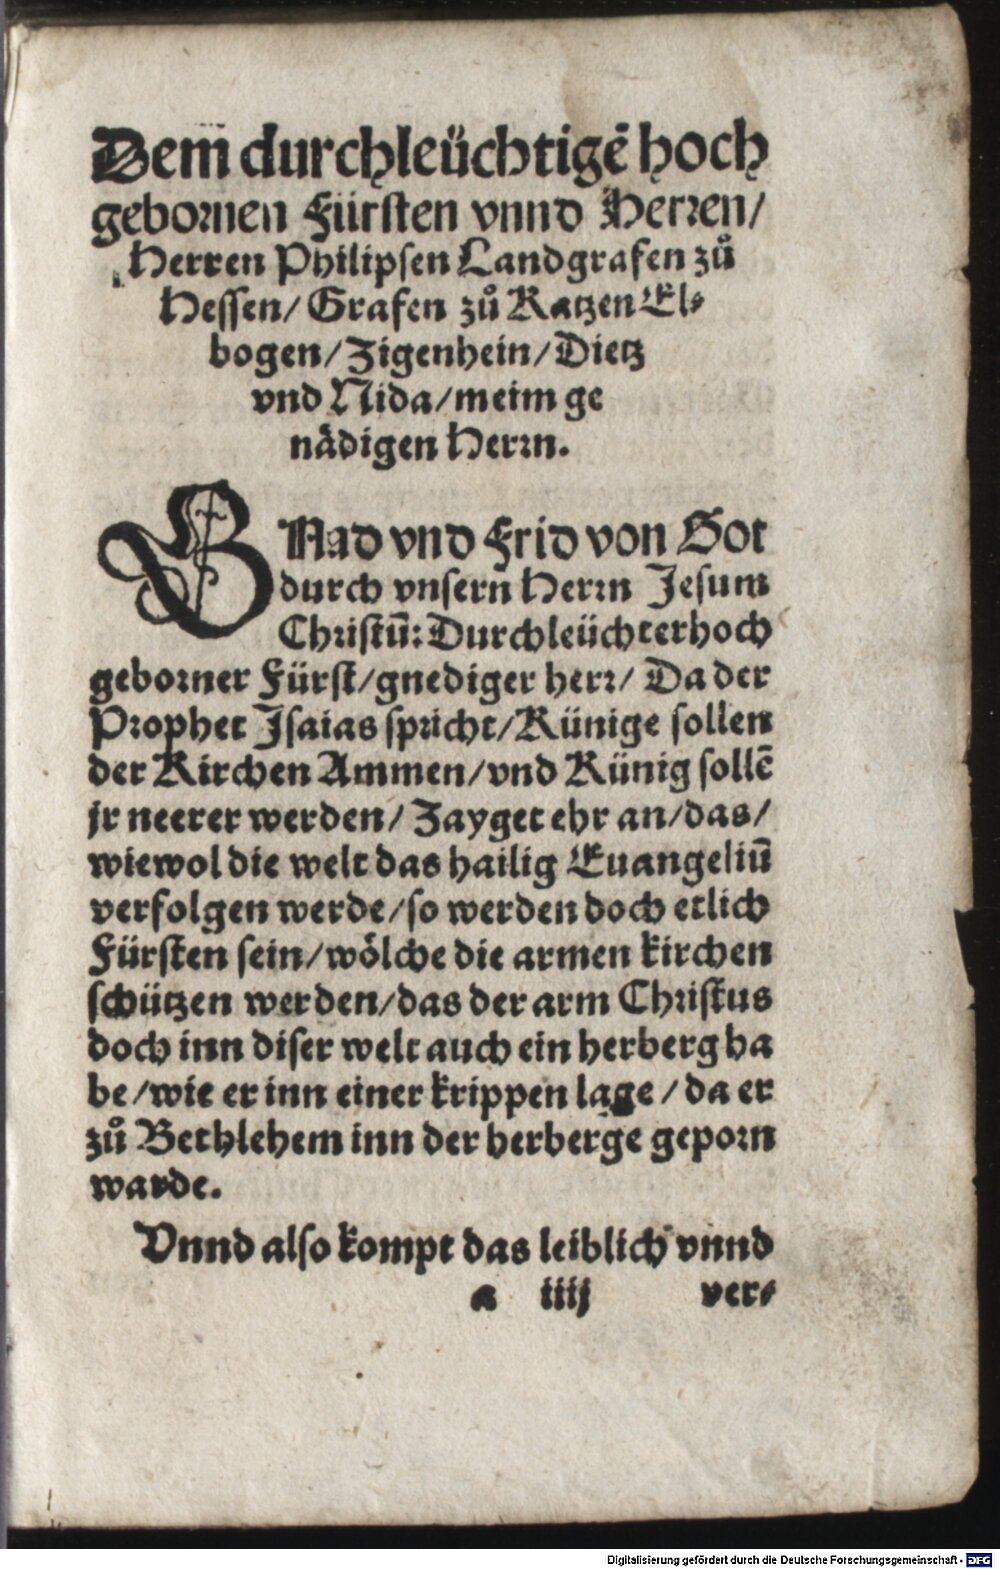 Dem durchleüchtigẽ hoch
gebornen Fürsten vnnd Herren/
Herren Philipsen Landgrafen zů
Hessen/ Grafen zů Katzen El⸗
bogen/ Zigenhein/ Dietz
vnd Nida/ meim ge
nådigen Herrn.
GNad vnd Frid von Got
durch vnsern Herrn Jesum
Christū: Durchleüchter hoch
geborner Fürst/ gnediger herr/ Da der
Prophet Isaias spricht/ Künige sollen
der Kirchen Ammen/ vnd Künig sollẽ
jr neerer werden/ Zayget ehr an/ das/
wiewol die welt das hailig Euangeliū
verfolgen werde/ so werden doch etlich
Fürsten sein/ wôlche die armen kirchen
schützen werden/ das der arm Christus
doch inn diser welt auch ein herberg ha
be/ wie er inn einer krippen lage/ da er
zů Bethlehem inn der herberge geporn
warde.
Vnnd also kompt das leiblich vnnd
a iiij ver⸗
Digitalisierung gefördert durch die Deutsche Forschungsgemeinschaft - DFG